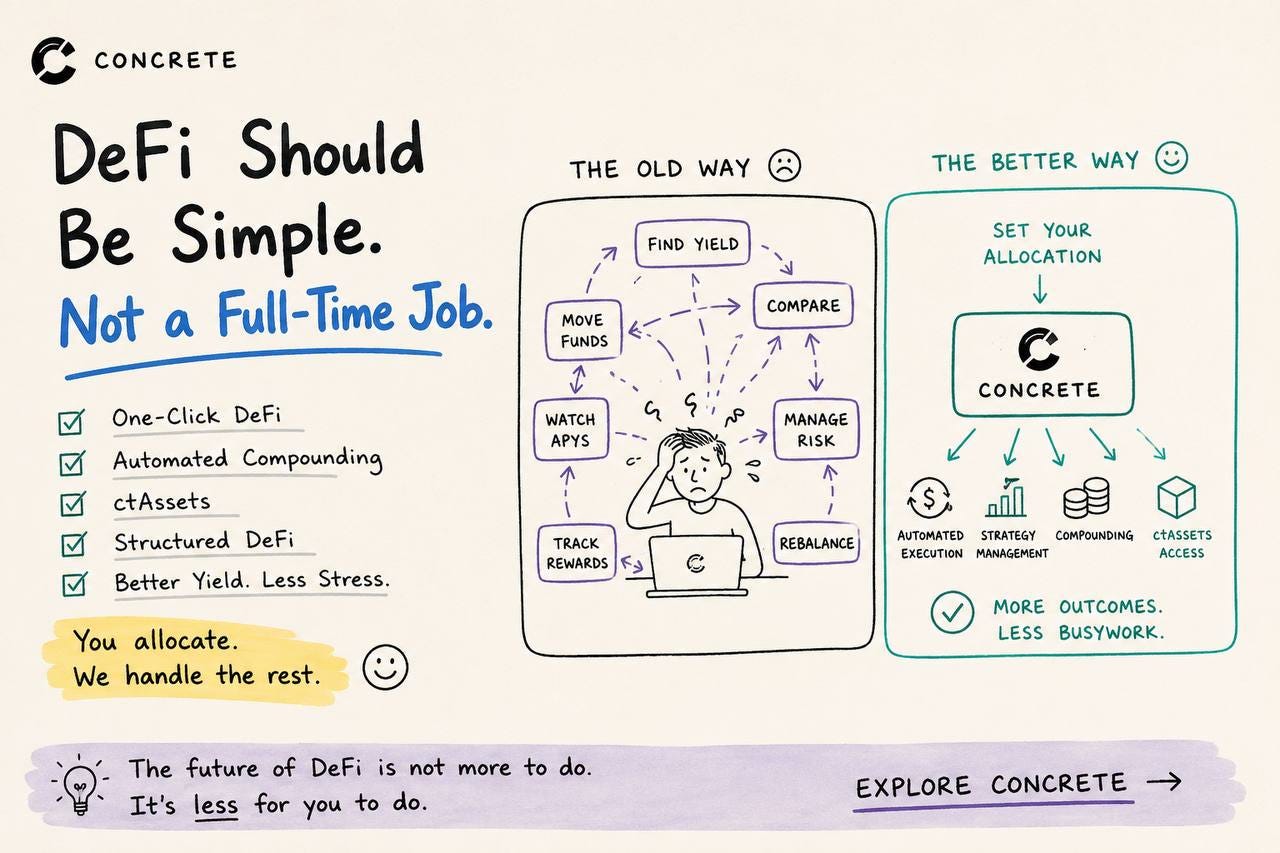 CONCRETE
DeFi Should
Be Simple.
Not a Full-Time Job.
One-Click DeFi
Automated Compounding
ctAssets
Structured DeFi
Better Yield. Less Stress.
You allocate.
We handle the rest.
THE OLD WAY
FIND YIELD
COMPARE
MOVE
FUNDS
WATCH
APYS
MANAGE
RISK
TRACK
REWARDS
REBALANCE
THE BETTER WAY
SET YOUR
ALLOCATION
CONCRETE
AUTOMATED
EXECUTION
STRATEGY
MANAGEMENT
COMPOUNDING
ctASSETS
ACCESS
MORE OUTCOMES.
LESS BUSYWORK.
The future of DeFi is not more to do.
It's less for you to do.
EXPLORE CONCRETE →